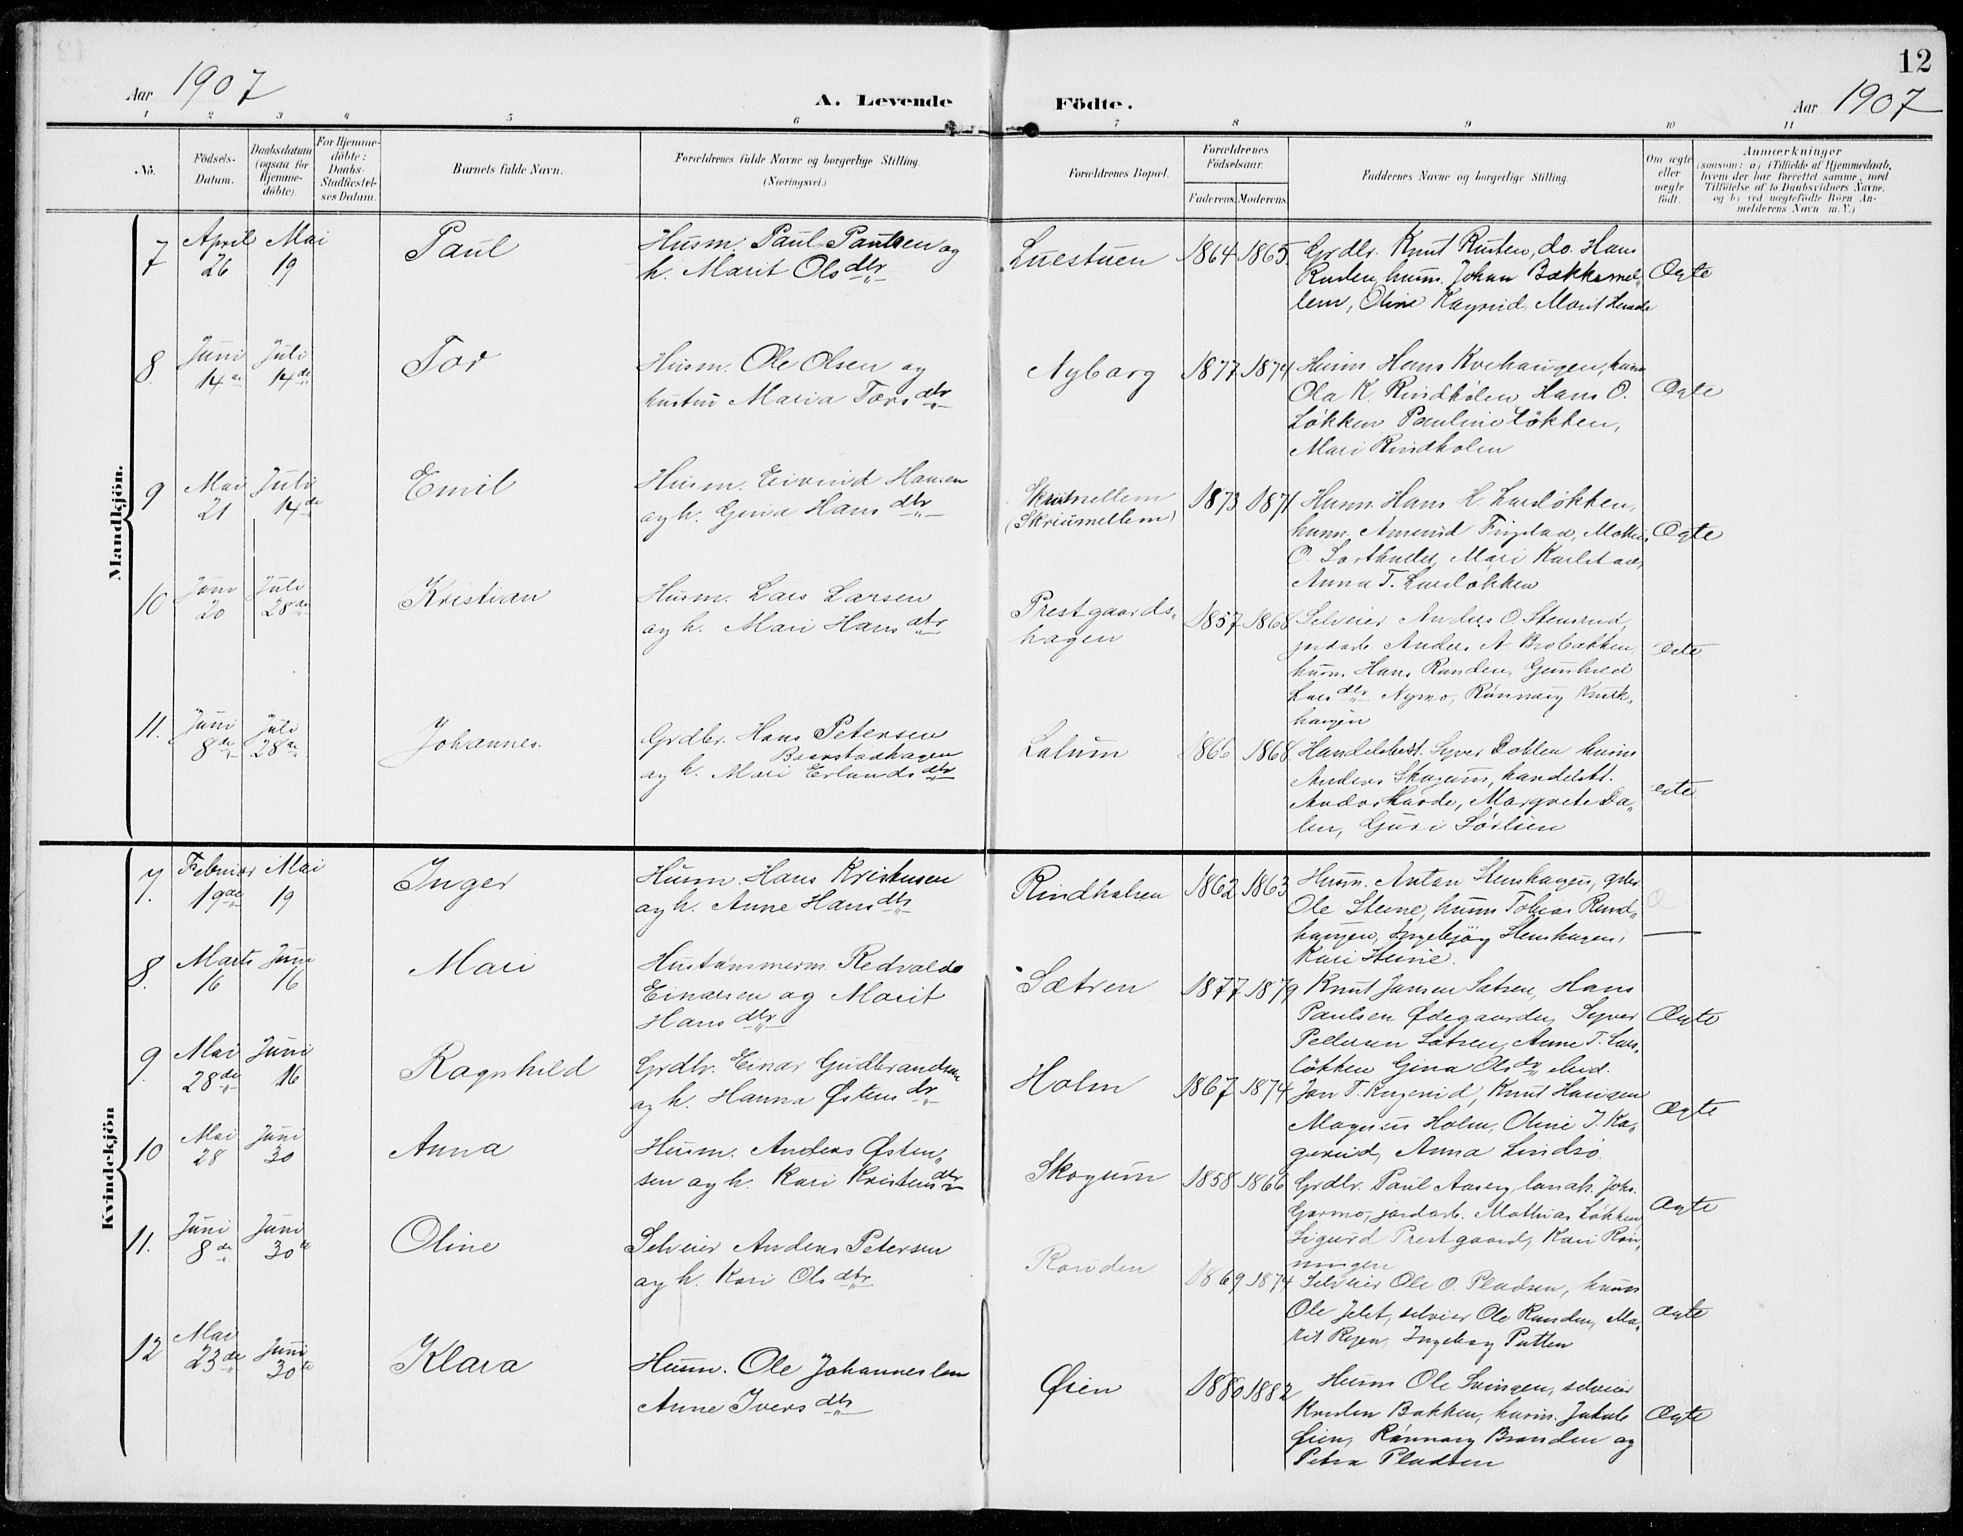 12
Aar 1907
A. Levende Födte.
Aar 1907
1 2 3 4 5 6 7 8 9 10 11
No.
Födsels-Datum.
Daabsdatum (ogsaa for Hjemme-döbte).
For Hjemme-döbte: Daabs-Stadfæstel-ses Datum.
Barnets fulde Navn.
Forældrenes fulde Navne og borgerlige Stilling.
(Næringsvei.)
Forældrenes Bopæl.
Forældrenes Födselsaar.
Faderens. Moderens.
Faddernes Navne og borgerlige Stilling.
Om ægte eller uægte födt.
Anmærkninger
(saasom: a) i Tilfælde af Hjemmedaab,
hvem der har forrettet samme, med
Tilföielse af to Daabsvidners Navne,
og b) ved uægtefödte Börn An-
melderens Navn m. V.)
Mandkjön.
7 April 26 Mai 19 Paul
Husm. Paul Paulsen og
h. Marit Olsdtr
Luestuen 1864 1865
Grdbr. Knut Rusten, do. Hans
Ruden, husm. Johan Bakkemel-
lem, Oline Kagrud, Marit
Ægte
8. Juni 14de Juli 14de Tor
Husm. Ole Olsen og
hustru Maria Torsdtr
Nyborg 1877 1874
Husm. Hans Kvehaugen, husm
Ola K. Rindhölen Hans O.
Løkken Pauline Løkken,
Mari Rindholen
Ægte
9 Mai 21 Juli 14de Emil
Husm. Eivind Hansen
og h. Gina Hansdtr
Skriumellem
(Skriumellem) 1873 1871
Husm. Hans H. Larsløkken,
husm.
Mari Karlstad,
Anna T. Larsløkken
Ægte
10 Juni 20 Juli 28de Kristian
Husm. Lars Larsen
og h. Mari Hansdtr
Prestgaards-
hagen 1857 1868
Selveier Anders O. Stensrud,
jordarb. Anders A. Brobakken,
husm. Hans Randen, Gunhild
Larsdtr Nymo, Rönnaug Knut-
haugen
ægte
11. Juni 8de Juli 28de Johannes.
Grdbr. Hans Petersen
Baarstadhagen
og h. Mari Erlandsdtr
Lalum 1866 1868
Handelsbest. Syver Dahlen husm
Anders Skogum, handelsb.
Anders Harde, Margrete Da-
len, Guri Sörlien
ægte.
Kvindekjön
7. Februar 19de Mai 19 Inger
Husm. Hans Kristensen
og h. Anne Hansdtr
Rindhalsen 1862 1863
Husm. Anton Stenshagen, grdbr
Ole Steine, husm Tobias Rind-
haugen, Ingebjörg Stenshagen,
Kari Steine.
8. Marts 16 Juni 16 Mari
Hustømmerm. Redvald
Einarsen og Marit
Hansdtr
Sætren 1877 1879
Knut Jansen Sætren, Hans
Paulsen Ødegaarden, Syver
Pedersen Sætren, Anne T. Lars-
løkken Gina Olsdtr ibid.
Ægte
9. Mai 28de Juni 16 Ragnhild
Grdbr. Einar Gudbrandsen
og h. Hanna Østensdtr
Holm 1867 1874
Jon T. Kagerud, Knut Haugen
Magnus Holm, Oline J. Ka-
gerud, Anna Lindsö
Ægte
10 Mai 28 Juni 30 Anna
Husm. Anders Østen-
sen og h. Kari Kristensdtr
Skogum 1858 1866
Grdbr. Paul Aaseng, landh. Johs.
Garmo, jordarb. Mathias Løkken
Sigurd Prestgaard, Kari Røn-
ningen
Ægte
11. Juni 8de Juni 30te Oline
Selveier Anders Petersen
og h. Kari Olsdtr
Rauden 1869 1874
Selveier Ole O. Pladsen, husm
Ole Jetet, selveier Ole Randen, Ma-
rit Rejen, Ingeborg Putten
ægte
12 Mai 23de Juni 30te Klara
Husm. Ole Johanneslen
Anne Iversdtr
Øien 1880 1882
Husm Ole Svingen, selveier
Kristen Bakken, husm. Jakob
Øien, Rønnaug Branden og
Petra Pladsen
Ægte